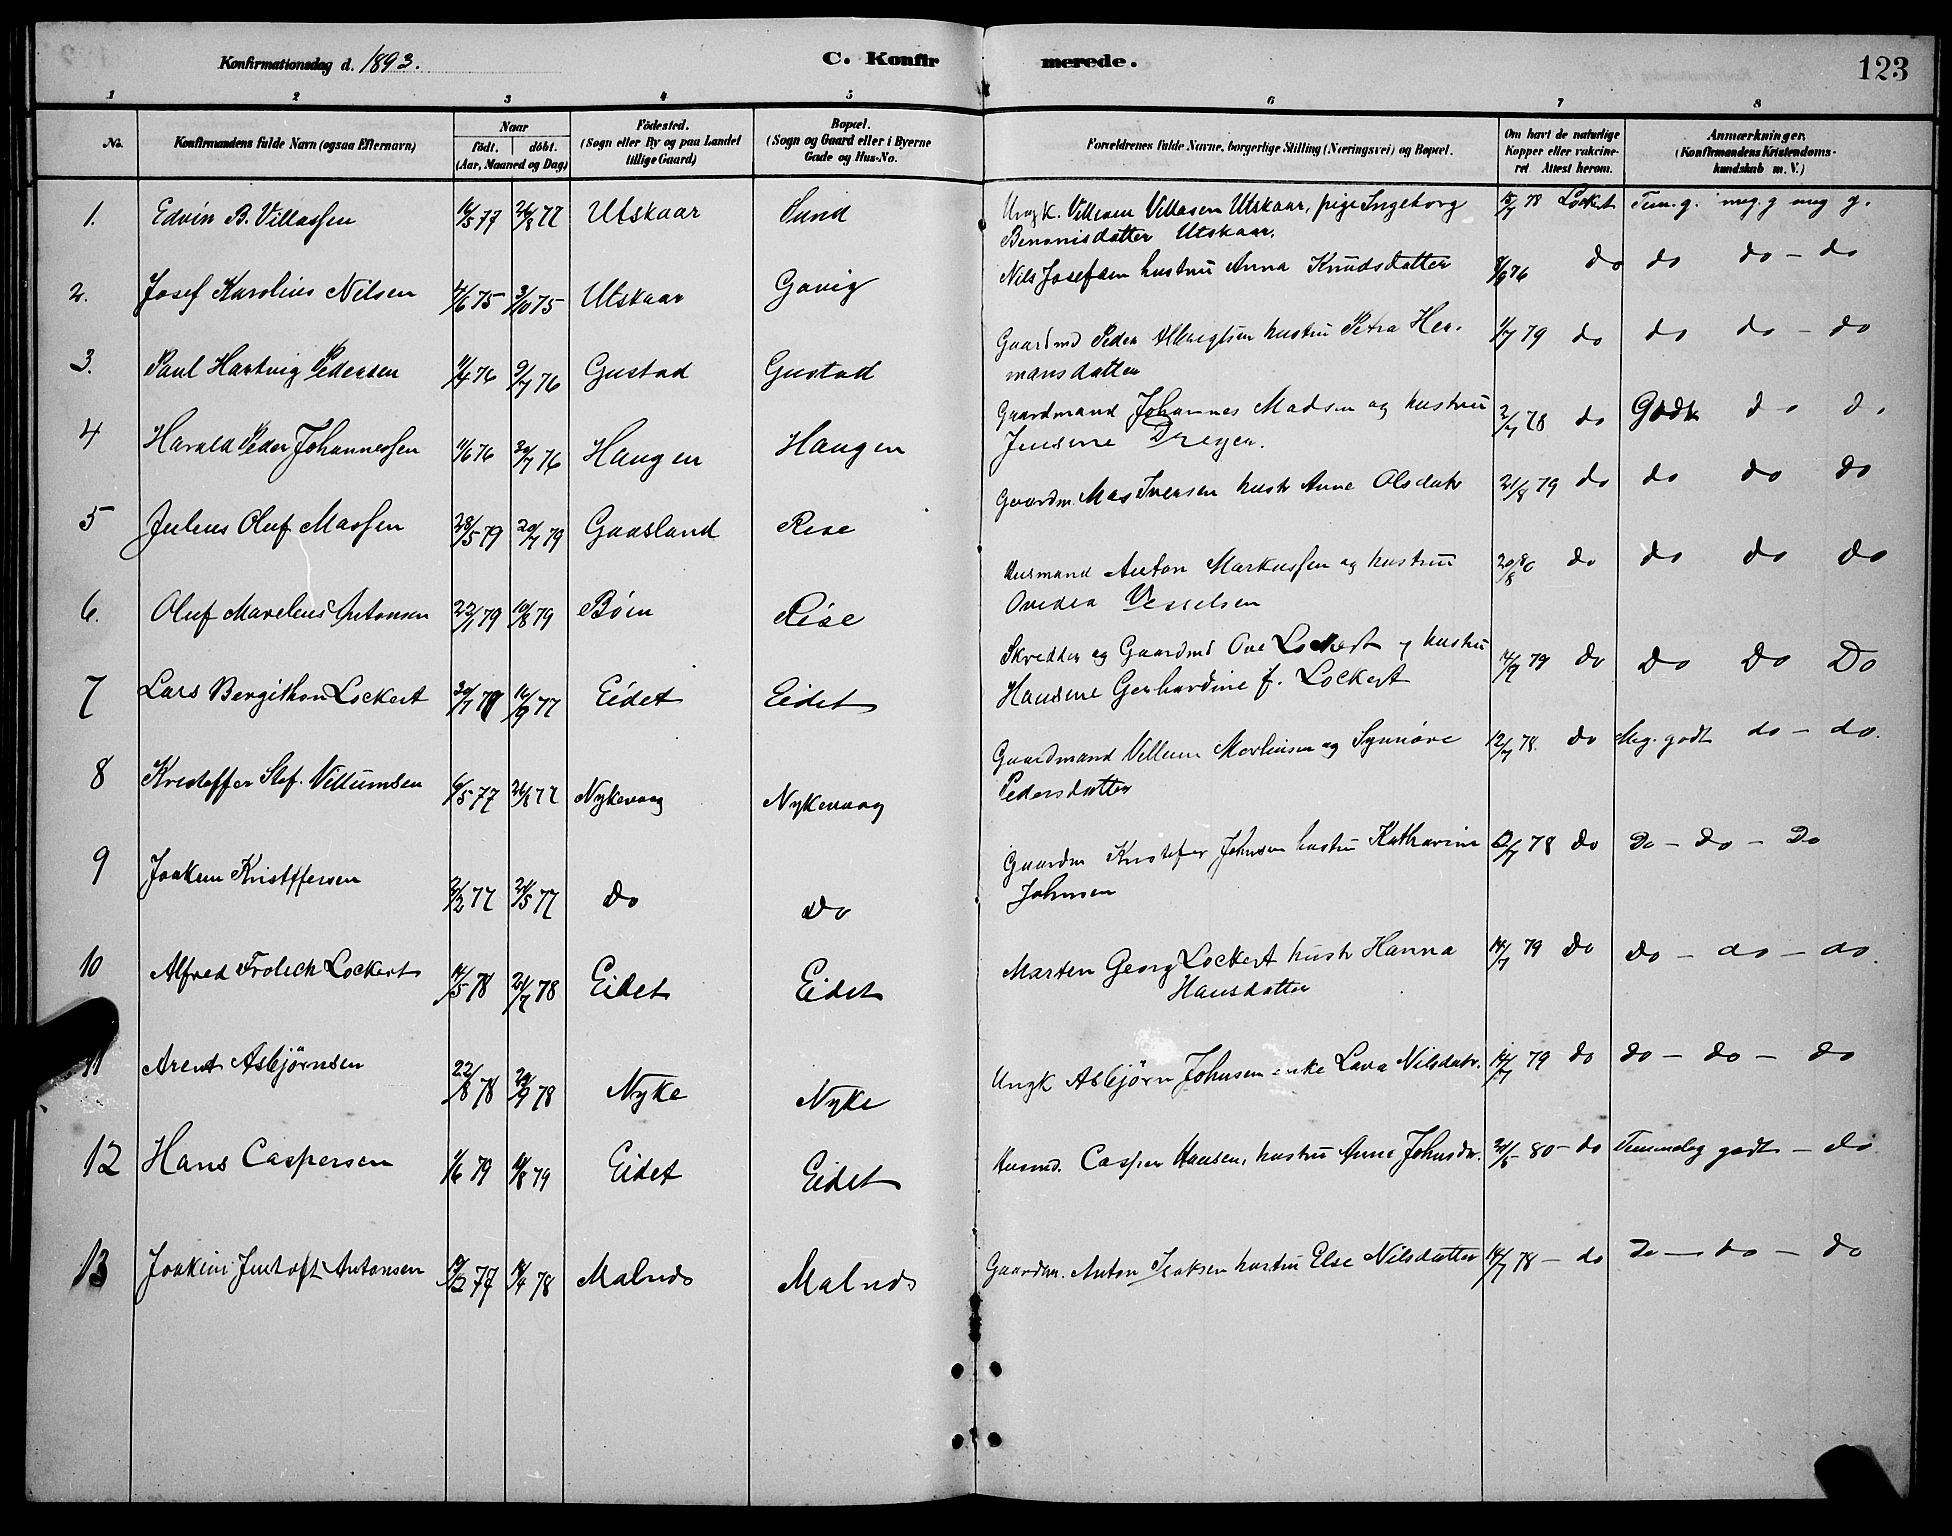 Konfirmationsdag d. 1893.
C. Konfirmerede.
123
1 2 3 4 5 6 7 8
No.
Konfirmandens fulde Navn (ogsaa Efternavn)
Naar
födt. döbt.
(Aar, Maaned og Dag)
Födested.
(Sogn eller By og paa Landet
tillige Gaard)
Bopæl.
(Sogn og Gaard eller i Byerne
Gade og Hus-No.
Forældrenes fulde Navne, borgerlige Stilling (Næringsvei) og Bopæl.
Om havt de naturlige
Kopper eller vakcine-
ret Attest herom.
Anmærkninger.
(Konfirmandens Kristendoms-
kundskab m. V.)
1. Edvin B. Villassen 77 26/8 77 Utskaar Sund Ungk. Villum Villasen Utskaar, pige Ingeborg 78 Lockert Tem. g. meg. g meg g.
Benonisdatter Utskaar.
2. Josef Karolius Nilsen 4/6 75 3/10 75 Utskaar Gavig Nils Josefsen hustru Anna Knudsdatter 76 do do do – do
3. Paul Hartvig Pedersen 4/4 76 9/7 76 Gustad Gustad Gaardmd Peder hustru Petra Her-
mansdatter 1/7 79 do do do – do
4 Harald Peder Johannessen 76 30/7 76 Haugen Haugen Gaardmand Johannes Madsen og hustru
Jensine Dreyer. 2/7 78 do Godt do do
5 Julius Oluf Massen 28/5 79 20/7 79 Gaasland Rise Gaardm. Mas Iversen hustr Anne Olsdatr 21/8 79 do do do do
6. Oluf Marelius Antonsen 22/1 79 10/8 79 Böen Rise Husmand Anton Markussen og hustru
Ovedia Wesselsen 20/8 80 do do do do
7 Lars Bergithon Lockert 30/7 77 16/9 77 Eidet Eidet Skredder og Gaardmd Ove Lockert og hustru
Hansine Gerhardine f. Lockert 14/9 79 do Do Do Do
8 Kristoffer Stef. Villumsen 6/5 77 26/8 77 Nykevaag Nykevaag Gaardmand Villum Mortensen og Synnöve
Pedersdatter 12/7 78. do Meg. godt do – do.
9 Joakim Kristffersen 2/2 77 21/5 77 Do Do Gaardm Kristofer Johnsen hustru Katharine
Johnsen 12/7 78 do Do – Do – Do
10 Alfred Frolich Lockert 14/5 78 21/7 78 Eidet Eidet Marten Georg Lockert hustr Hanna
Hansdatter 14/7 79 do Do – do – do.
11 Arent Asbjörnsen 22/8 78 29/9 78 Nyke Nyke Ungk Asbjörn Johnsen enke Lava Nilsdatr. 14/7 79 do do – do – do
12 Hans Caspersen 1/6 79 79 Eidet Eidet Husmd. Casper Hansen, hustru Anne Johnsdr. 80 – do Temmelig godt – do
13 Joakim Antonsen 77 78 Malnds Malnds Gaardm. Anton Isaksen hustru Else Nilsdatter 14/7 78 – do Do – do – do